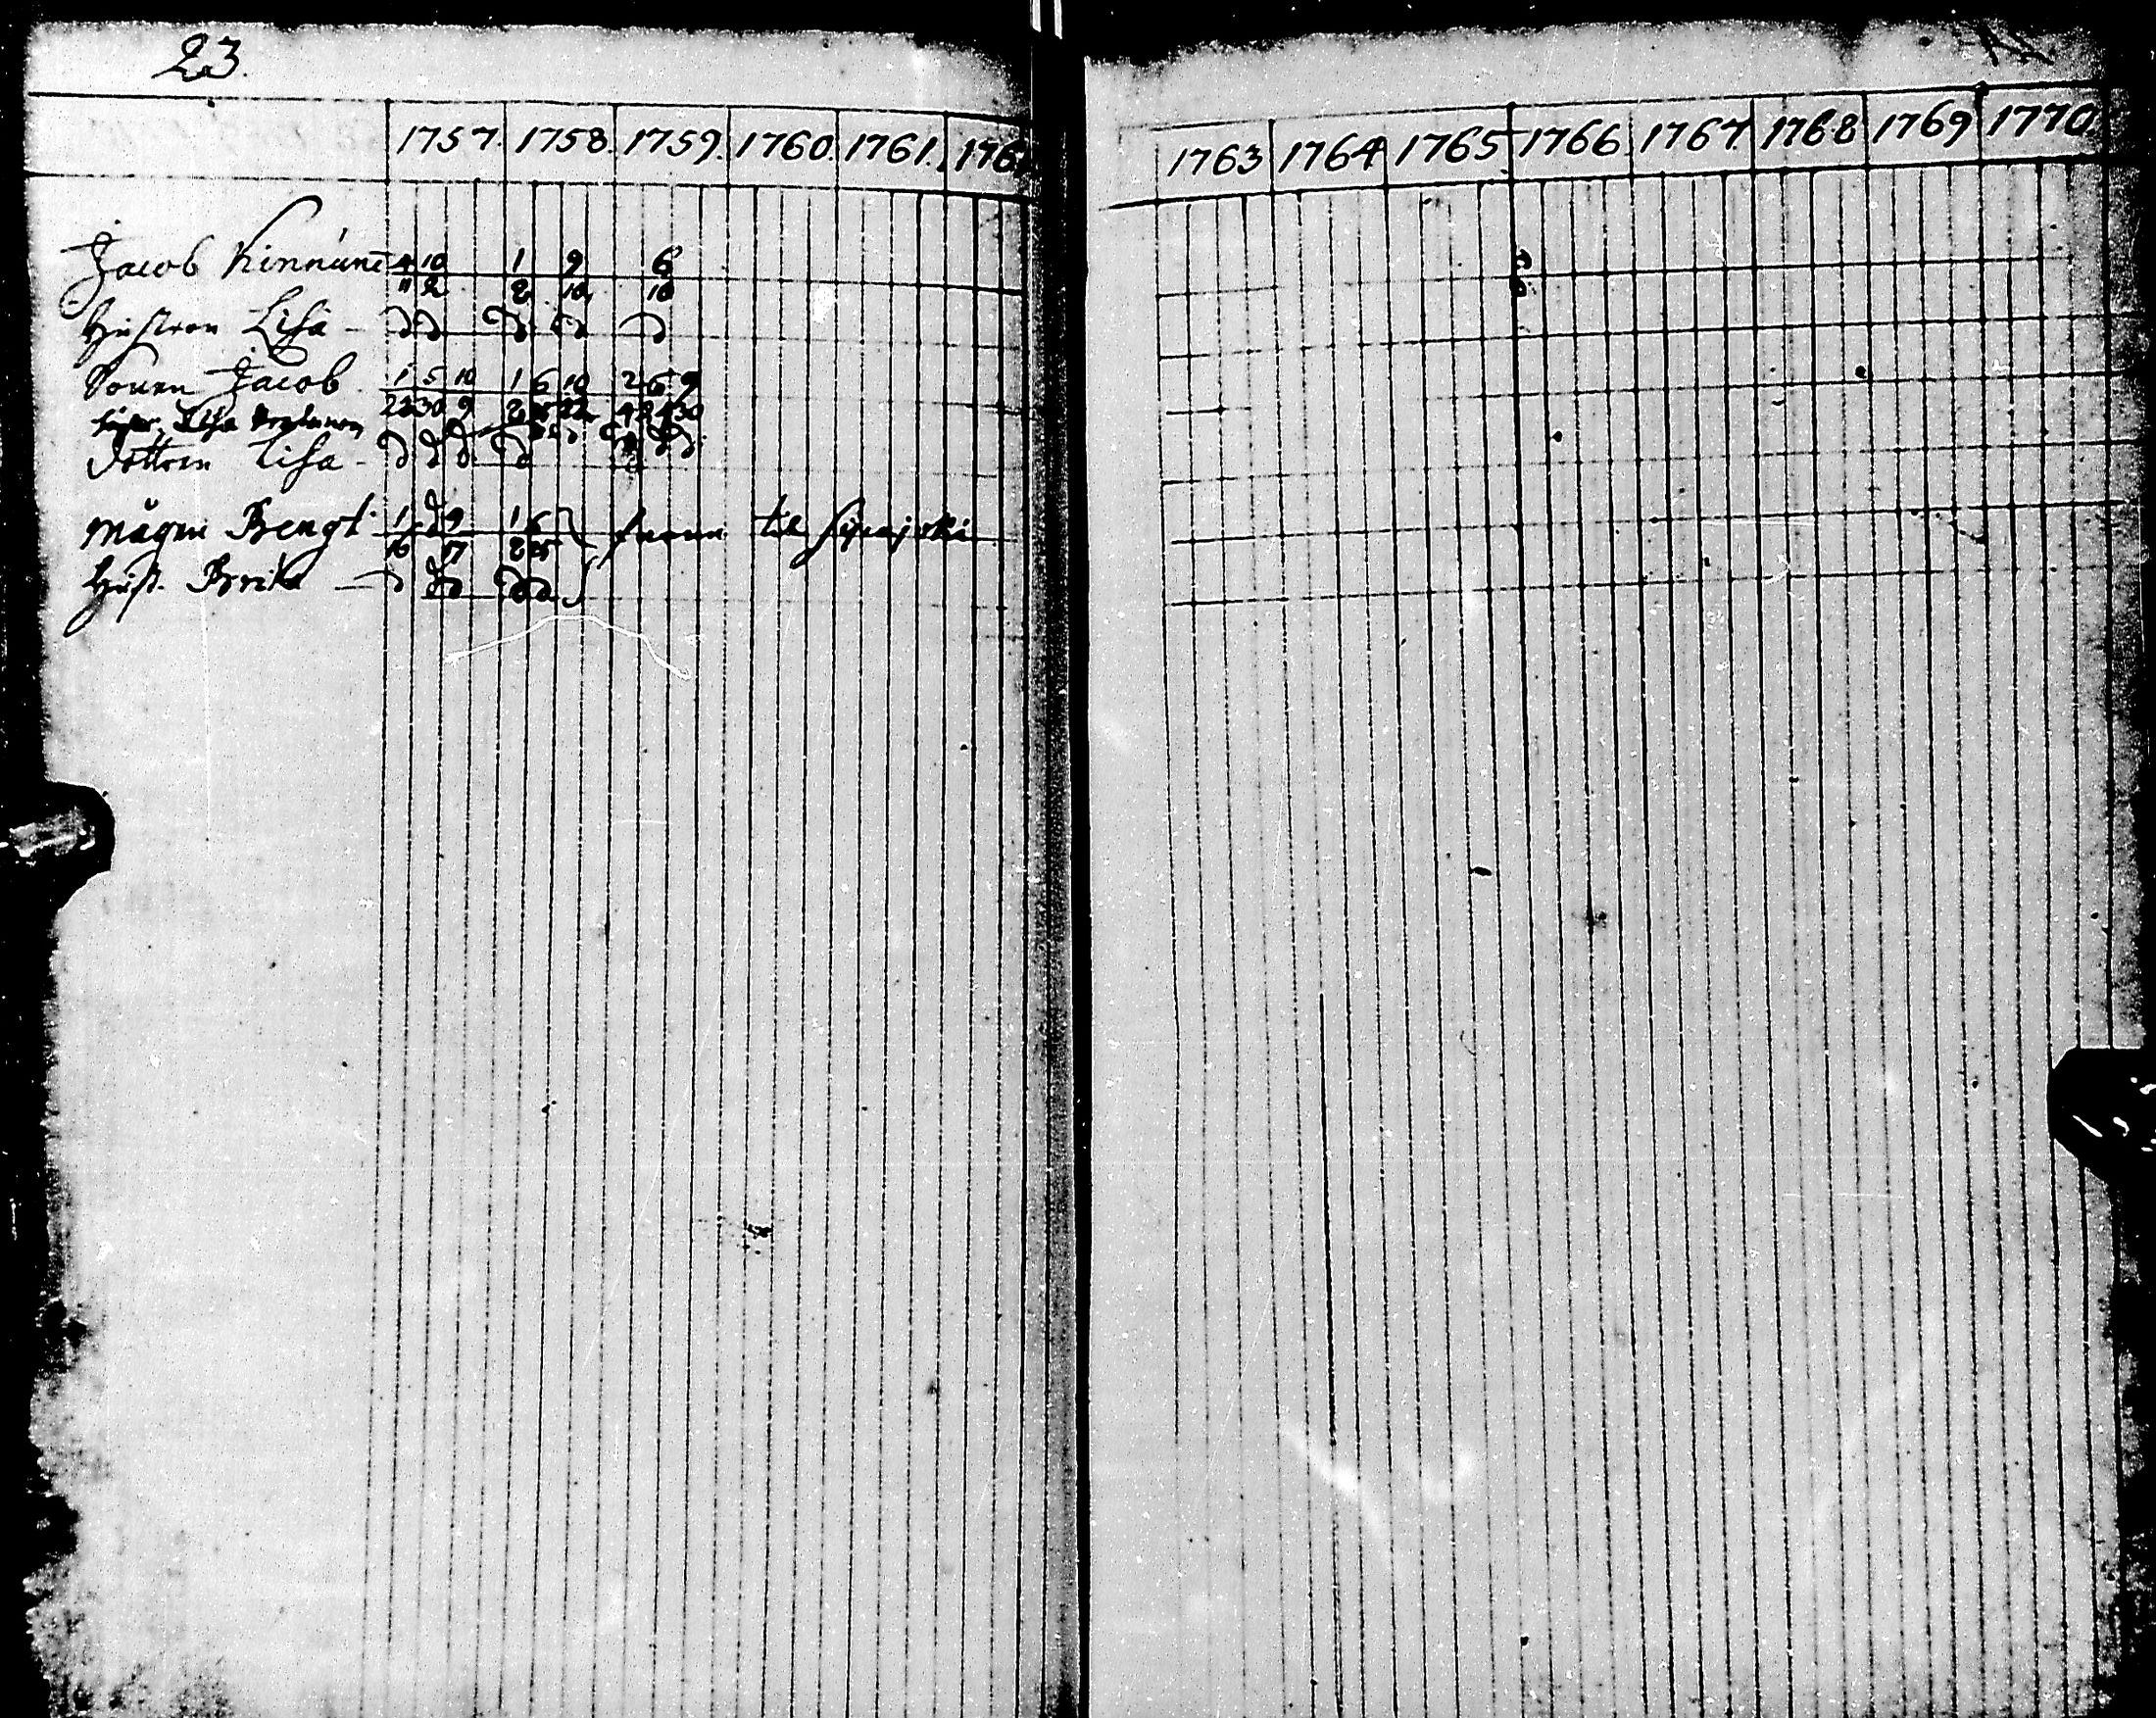 23.
1757. 1758. 1759. 1760. 1761. 176
1763 1764 1765 1766. 1767. 1768 1769 1770.
Jacob Kinnunē 4 10 1 9 6
11 2 2 10 10
Hustron Lisa - d d d d d
Sonen Jacob 1 5 10 1 6 10 2 6 9
Lisa
23 30 9 2 25 22 4 24 30
Dottren Lisa - d d d d
mågen Bengt 1 d 9 1 6
16 17 2 25
til
Hust. Brita — d d d d d